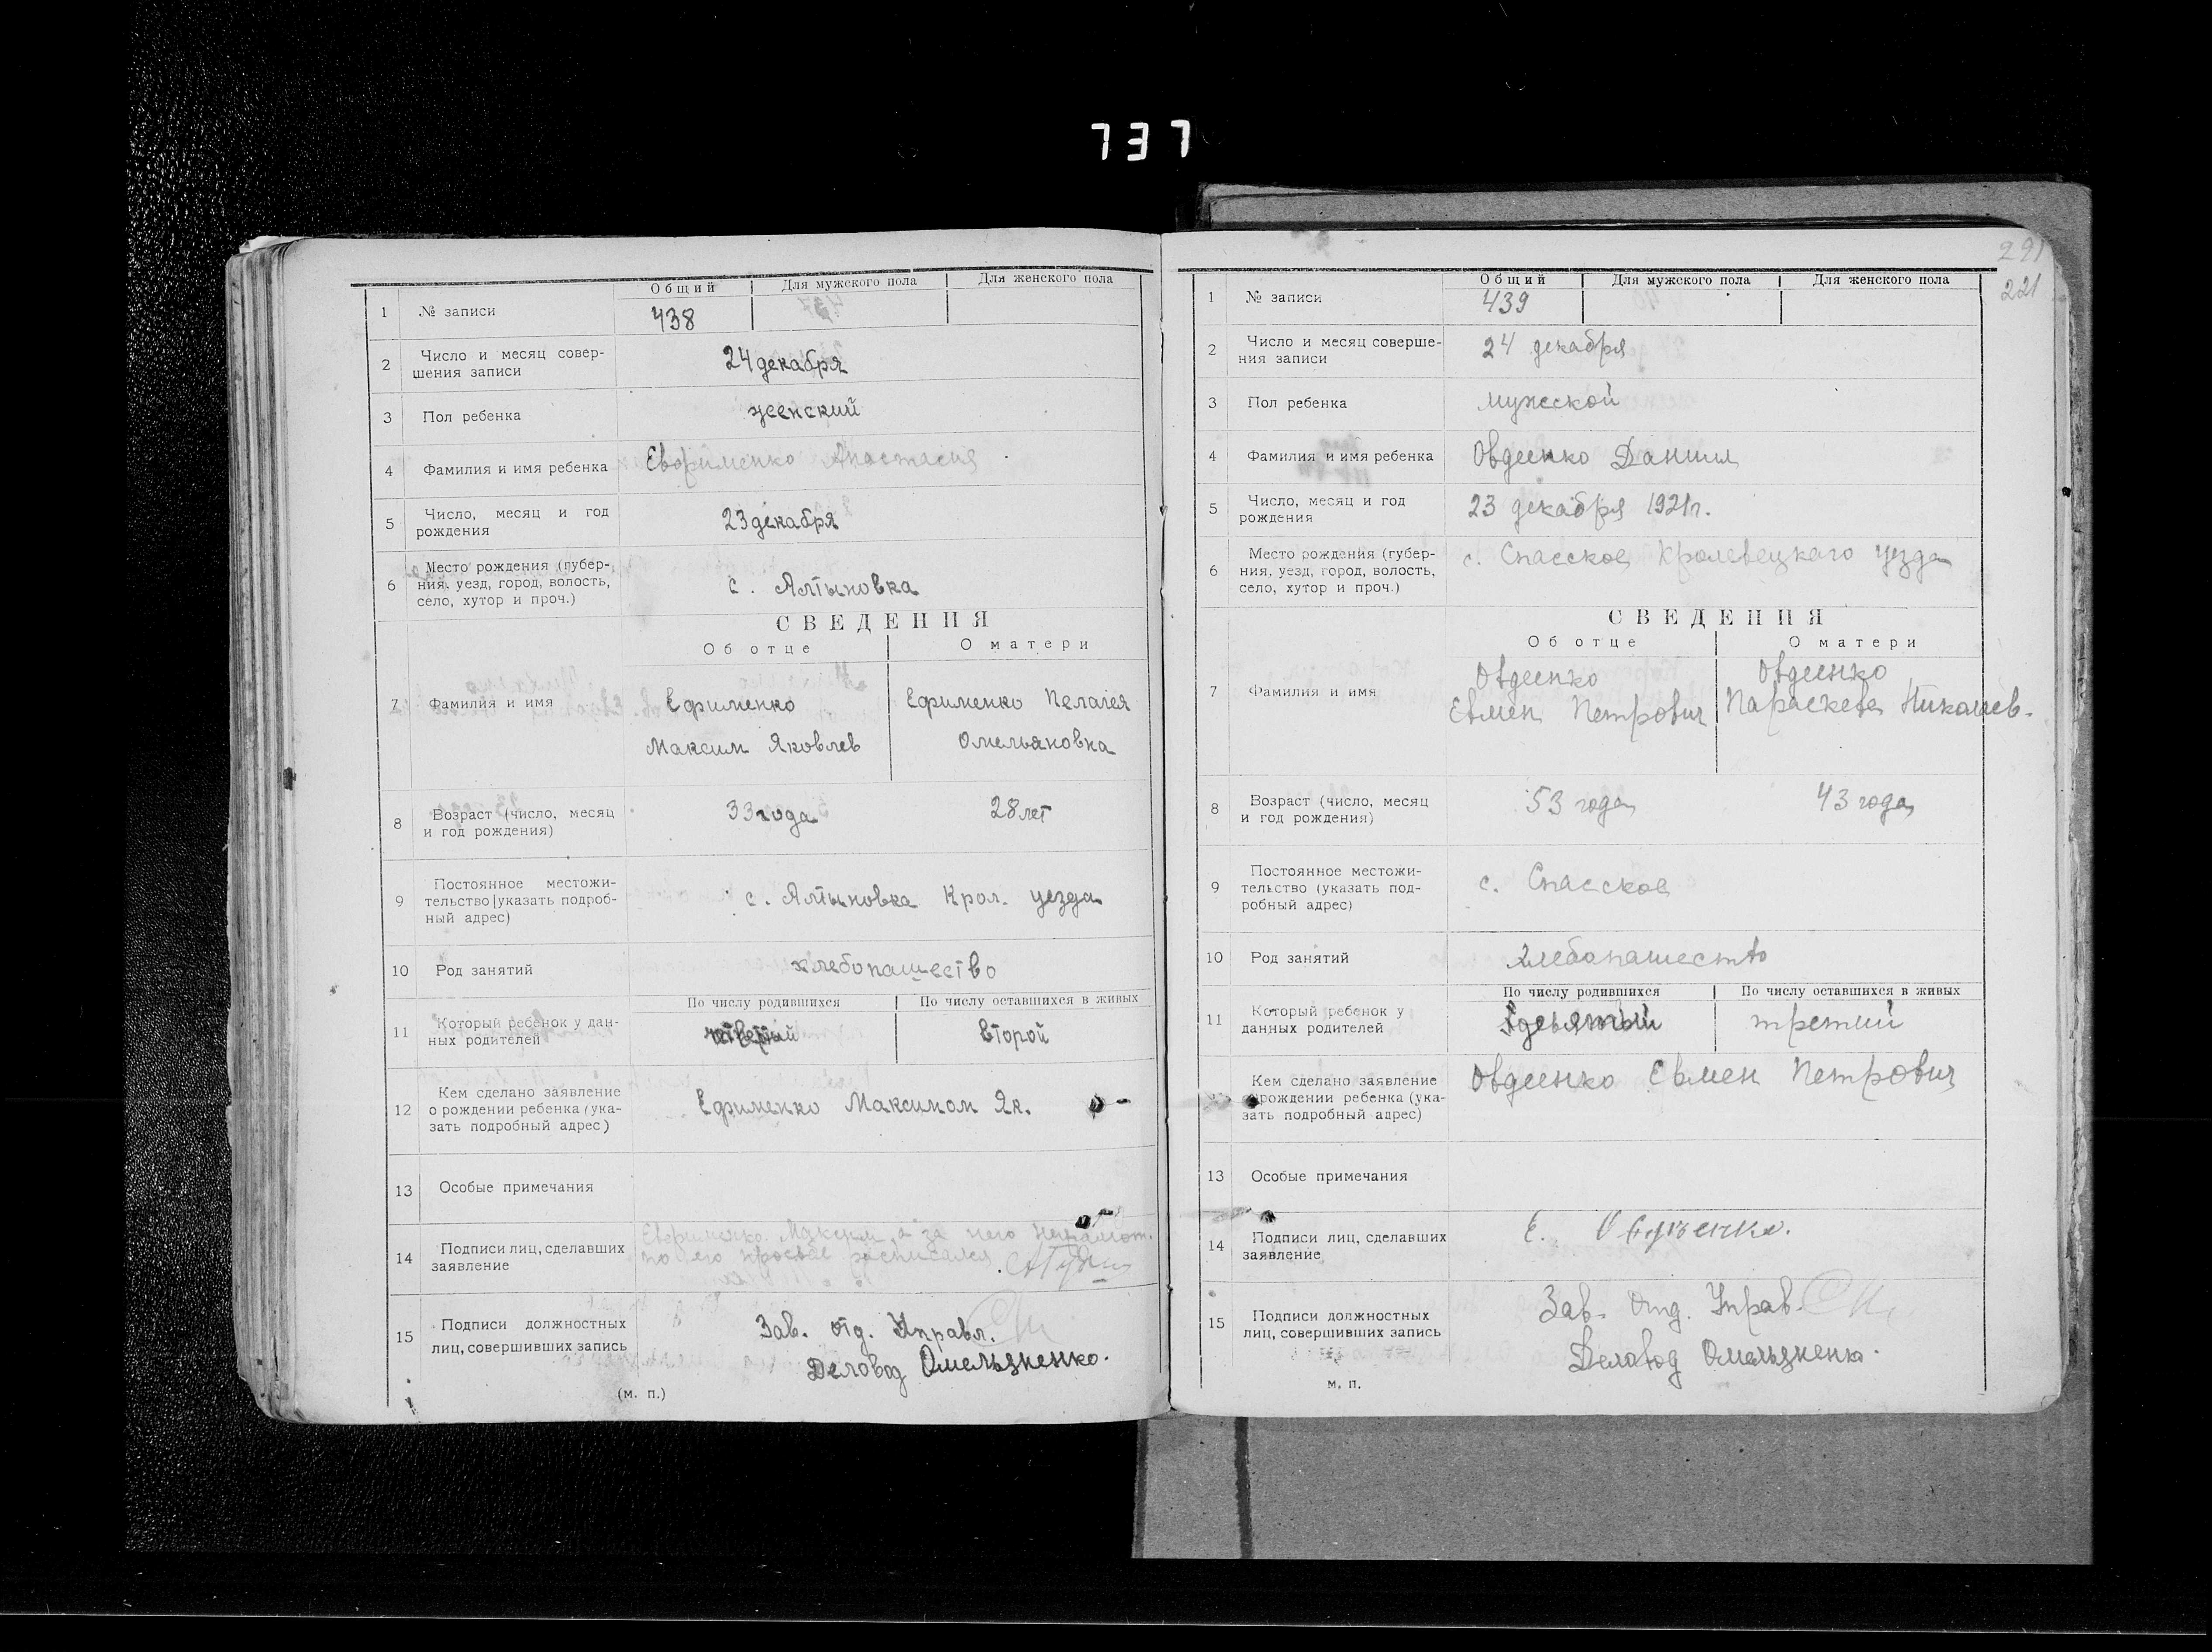 737
Общий Для мужского пола Для женского пола
1 № записи 438
2 Число и месяц совер-
шения записи
24 декабря
3 Пол ребенка женский
4 Фамилия и имя ребенка Евфименко Анастасия
5 Число, месяц и год
рождения
23 декабря
6 Место рождения (губер-
ния, уезд, город, волость,
село, хутор и проч.)
с. Алтыновка
СВЕДЕНИЯ
Об отце О матери
7 Фамилия и имя
Ефименко Ефименко Пелагея
Максим Яковлев Омельяновка
8 Возраст (число, месяц
и год рождения)
33 года 28 лет
9 Постоянное местожи-
тельство (указать подроб-
ный адрес)
с. Алтыновка Крол. уезда
10 Род занятий хлебопашество
По числу родившихся По числу оставшихся в живых
11 Который ребенок у дан-
ных родителей
четвертый второй
12 Кем сделано заявление
о рождении ребенка (ука-
зать подробный адрес)
Ефименко Максимом Як.
13 Особые примечания
14 Подписи лиц, сделавших
заявление
Евфименко Максим а за него неграмот.
по его просьбе расписался
15 Подписи должностных
лиц, совершивших запись
Зав. отд. Управл.
Деловод Омельяненко.
(м. п.)
291
221
Общий Для мужского пола Для женского пола
1 № записи 439
2 Число и месяц соверше-
ния записи
24 декабря
3 Пол ребенка мужской
4 Фамилия и имя ребенка Овдеенко Даниил
5 Число, месяц и год
рождения
23 декабря 1921г.
6 Место рождения (губер-
ния, уезд, город, волость,
село, хутор и проч.)
с. Спасское Кролевецкаго уезда
СВЕДЕНИЯ
Об отце О матери
7 Фамилия и имя
Овдеенко Овдеенко
Евмен Петрович Параскева Николаев.
8 Возраст (число, месяц
и год рождения)
53 года 43 года
9 Постоянное местожи-
тельство (указать под-
робный адрес)
с. Спасское
10 Род занятий хлебопашество
По числу родившихся По числу оставшихся в живых
11 Который ребенок у
данных родителей
девятый третий
Кем сделано заявление
о рождении ребенка (ука-
зать подробный адрес)
Овдеенко Евмен Петрович
13 Особые примечания
14 Подписи лиц, сделавших
заявление
Е.
15 Подписи должностных
лиц, совершивших запись
Зав. отд. Управ.
Деловод Омельяненко.
м. п.